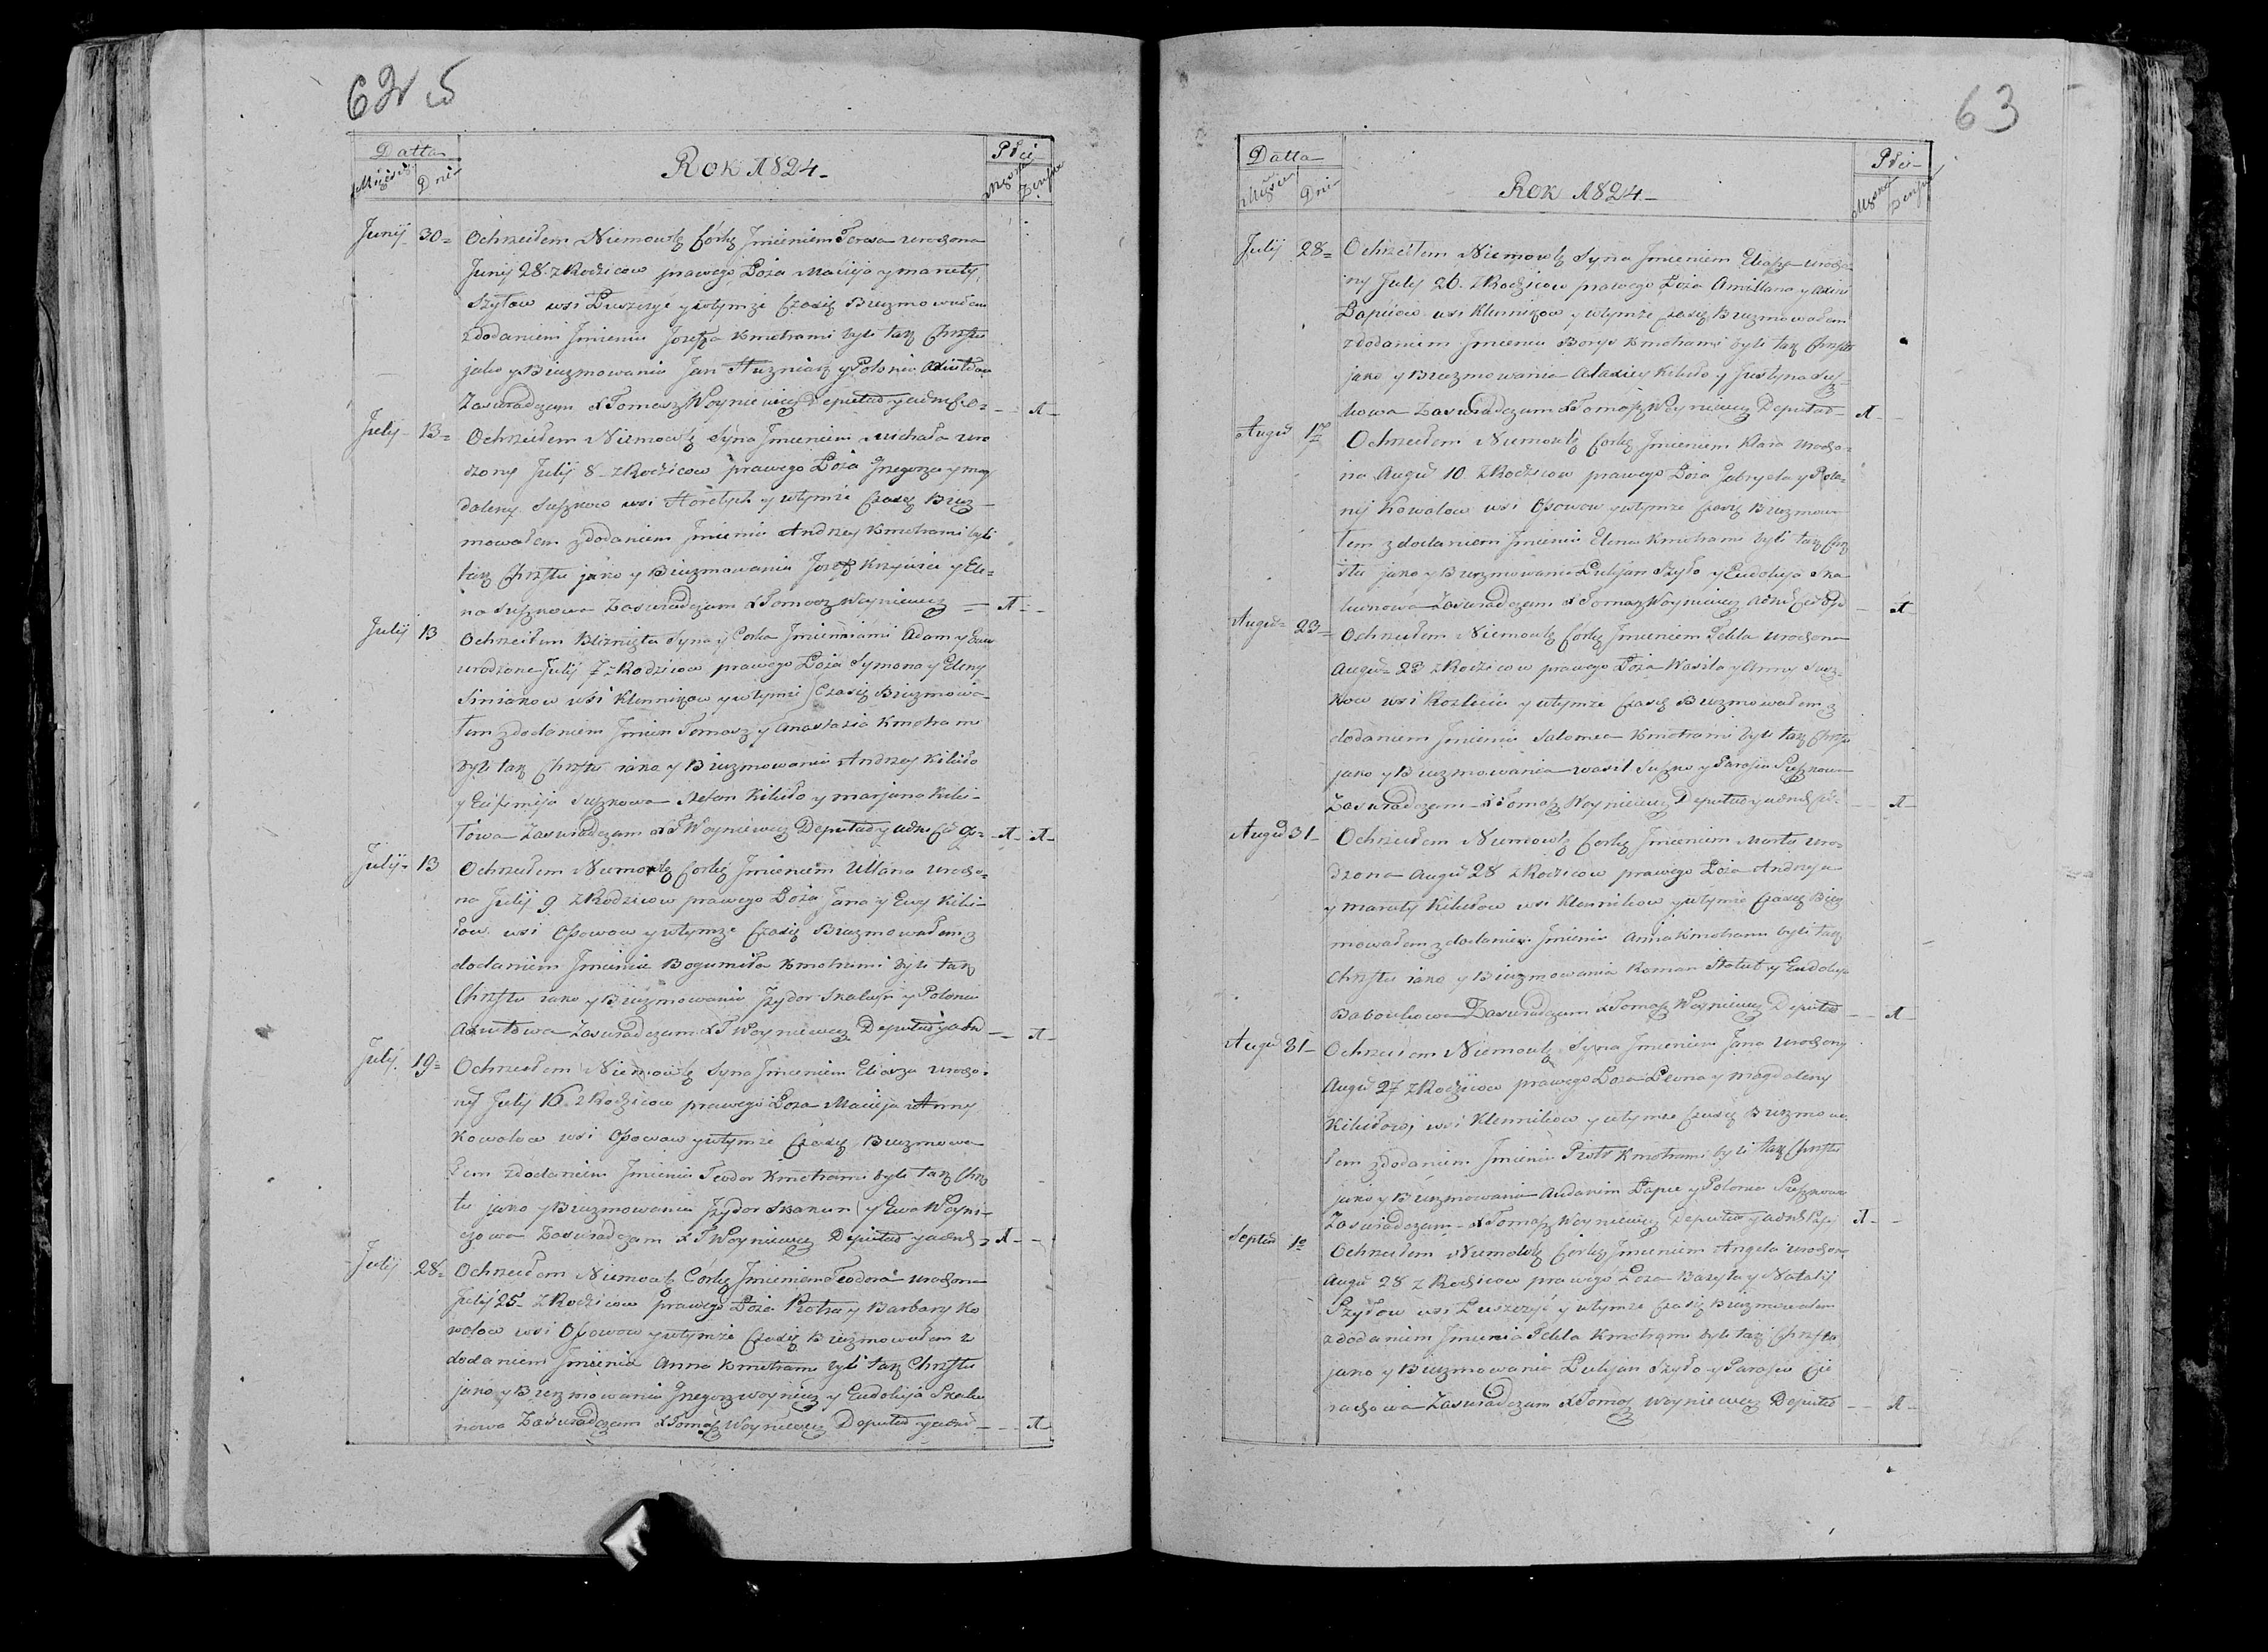 62v
Datta
Rok 1824.
Płci
Miesiąc Dni
Męska Żeńska
Junij 30 Ochrzciłem Niemowlę Córkę Jmieniem Teresa urodzona
Junij 28. z Rodzicow prawego Łoża Macieja y Maruty
Szyłow wsi y wtymże Czasie Bierzmowałem
z dodaniem Jmienia Jozefa Kmotrami byli tak Chrztu
jako y Bierzmowania Jan y Polonia
Zaswiadczam X Tomasz Woyniewicz Deputat y
Julij 13 Ochrzciłem Niemowlę Syna Jmieniem Michała uro
dzony Julij 8 z Rodzicow prawego Łoża Grzegorza y Mag
daleny Suszkow wsi y wtymże Czasie Bierz-
mowałem z dodaniem Jmienia Andrzey Kmotrami byli
tak Chrztu jako y Bierzmowania Jozef y Ele=
na Suszkowa Zaswiadczam X Tomasz Woyniewicz
Julij 13 Ochrzciłem Bliznięta Syna y Corka Jmieniami Adam y Ewa
urodzone Julij 7 z Rodzicow prawego Łoża Symona y Eleny
Siniakow wsi Klennikow y wtymże Czasie Bierzmowa-
łem z dodaniem Jmien Tomasz y Anastazia Kmotrami
byli tak Chrztu iako y Bierzmowania Andrzey Kiliło
y Eufimija Suszkowa Stefan Kiliło y Marjana Kili-
łowa Zaswiadczam X T Woyniewicz Deputat y
Julij 13 Ochrzciłem Niemowlę Corkę Jmieniem Ullana urodzo=
na Julij 9 z Rodzicow prawego Łoża Jana y Ewy Kili-
łow wsi Osowow y wtymże Czasie Bierzmowałem z
dodaniem Jmienia Bogumiła Kmotrami byli tak
Chrztu iako y Bierzmowania Jzydor y Polonia
Zaswiadczam X T Woyniewicz Deputat y
Julij 19 Ochrzciłem Niemowlę Syna Jmieniem Eliasza urodzo=
ny Julij 16. z Rodzicow prawego Łoża Macieja y Anny
Kowalow wsi Osowow y wtymże Czasie Bierzmowa
łem z dodaniem Jmienia Teodor Kmotrami byli tak Chrz
tu jako y Bierzmowania Jzydor Skakun y Ewa Woyni-
czowa Zaswiadczam X T Woyniewicz Deputat y
Julij 28 Ochrzciłem Niemowlę Córkę Jmieniem Teodora urodzona
Julij 25 z Rodzicow prawego Łoża Piotra y Barbary Ko
walow wsi Osowow y wtymże Czasie Bierzmowałem z
dodaniem Jmienia Anna Kmotrami byli tak Chrztu
jako y Bierzmowania Grzegorz y Eudokija Skaku
nowa Zaswiadczam X Tomasz Woyniewicz Deputat y
63
Datta
Rok 1824
Płci
Miesiąc Dni
Męska Żeńska
Julij 28 Ochrzciłem Niemowlę Syna Jmieniem Eliasza urodzo
ny Julij 26. z Rodzicow prawego Łoża y
Łapiciow wsi Klennikow y wtymże Czasie Bierzmowałem
z dodaniem Jmienia Borys Kmotrami byli tak Chrztu
jako y Bierzmowania Alaxiey Kiliło y Justyna Susz-
kowa Zaswiadczam X Tomasz Woyniewicz Deputat
August 17 Ochrzciłem Niemowlę Corkę Jmieniem Klara urodzo=
na August 10 z Rodzicow prawego Łoża Gabryela y Polo=
nij Kowalow wsi Osowow y wtymże Czasie Bierzmowa
łem z dodaniem Jmienia Elena Kmotrami byli tak Chrz
stu jako y Bierzmowania Łukjan Szyło y Eudokija Ska
kunowa Zaswiadczam X Tomasz Woyniewicz
August 23 Ochrzciłem Niemowlę Córkę Jmieniem Tekla urodzona
August 23 z Rodzicow prawego Łoża Wasila y Anny Susz
kow wsi y wtymże Czasie Bierzmowałem z
dodaniem Jmienia Salomea Kmotrami byli tak Chrztu
jako y Bierzmowania Wasil Suszko y Parasia Suszkowa
Zaswiadczam X Tomasz Woyniewicz Deputat y
August 31 Ochrzciłem Niemowlę Corkę Jmieniem Marta uro=
dzona August 28 z Rodzicow prawego Łoża Andrzeja
y Maruty Kiliłow wsi Klennikow y wtymże Czasie Bierz
mowałem z dodaniem Jmienia Anna Kmotrami byli tak
Chrztu iako y Bierzmowania Roman y Eudokija
Zaswiadczam X Tomasz Woyniewicz Deputat
August 31 Ochrzciłem Niemowlę Syna Jmieniem Jana urodzony
August 27 z Rodzicow prawego Łoża Leona y Magdaleny
Kiliłow wsi Klennikow y wtymże Czasie Bierzmowa
łem z dodaniem Jmienia Piotr Kmotrami byli tak Chrztu
jako y Bierzmowania y Polonia Suszkowa
Zaswiadczam X Tomasz Woyniewicz Deputat y
Septem 1 Ochrzciłem Niemowlę Córkę Jmieniem Angela urodzona
August 28 z Rodzicow prawego Łoża Bazyla y Natalij
Szyłow wsi y wtymże Czasie Bierzmowałem
z dodaniem Jmienia Tekla Kmotrami byli tak Chrztu
jako y Bierzmowania Łukjan Szyło y Parasia
Zaswiadczam X Tomasz Woyniewicz Deputat